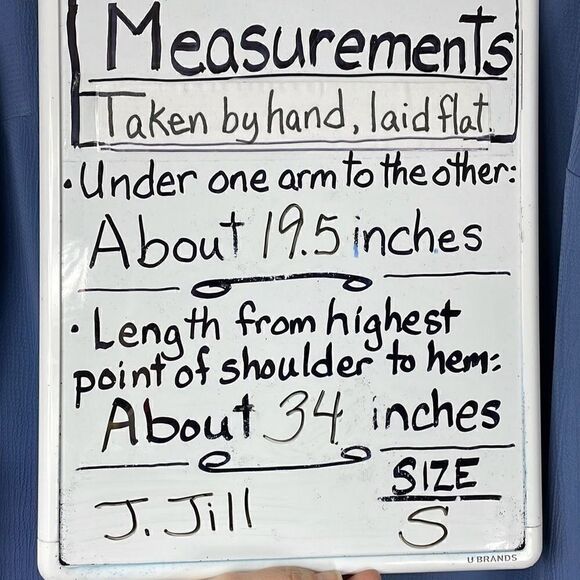 Measurements
Taken by hand, laid flat
• Under one arm to the other:
About 19.5 inches
• Length from highest
point of shoulder to hem:
About 34 inches
J. Jill
SIZE
S
U BRANDS